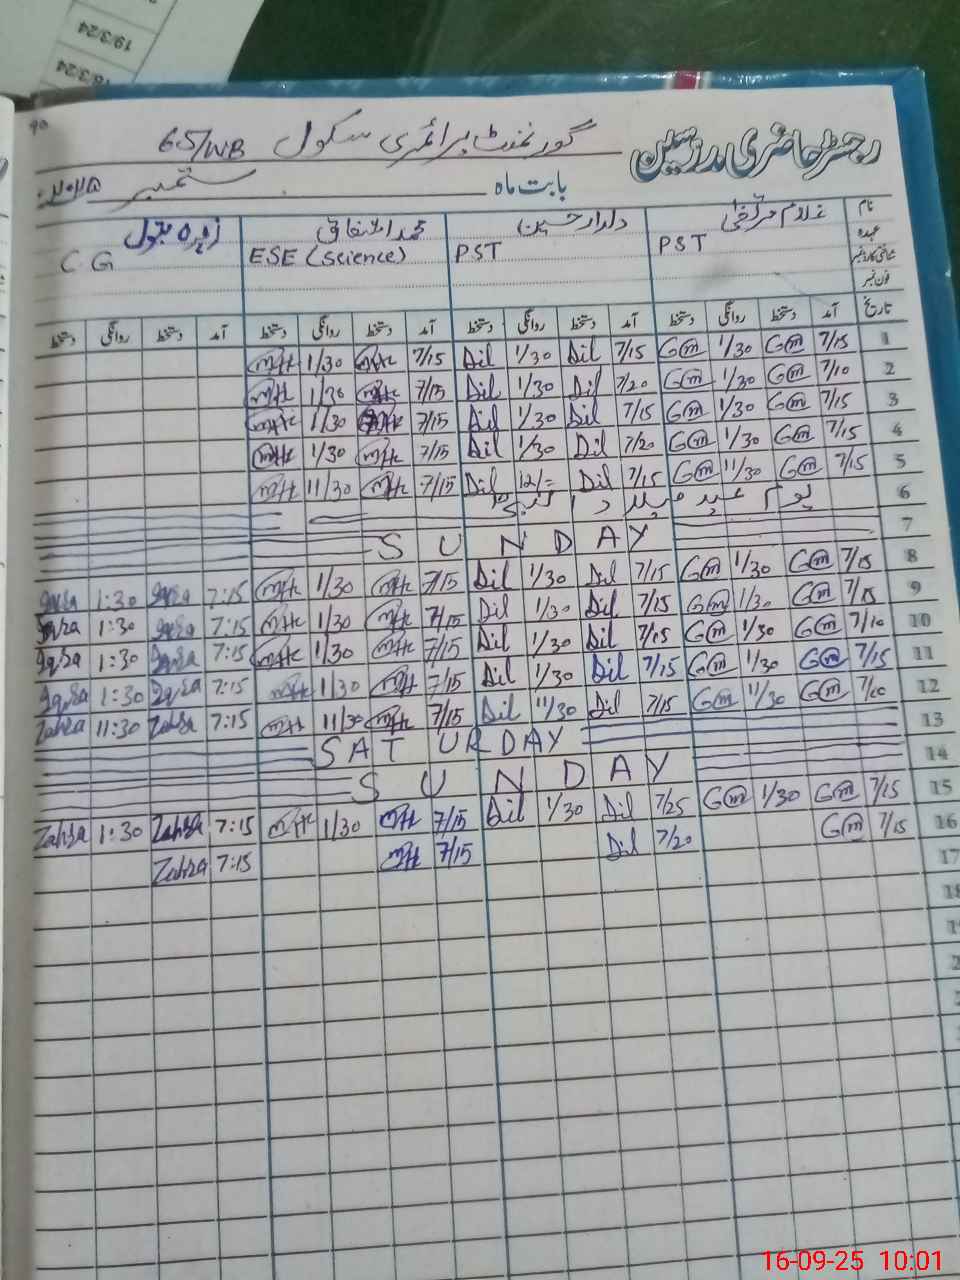 19/3/24
18/3/24
90
رجسٹر حاضری مدرسین گورنمنٹ پرائمری سکول 65/WB
بابت ماہ ستمبر ۲۰۲۵
نام غلام مرتضیٰ دلدار حسین محمد اشفاق زہرہ بتول
عہدہ PST PST ESE (Science) C G
شناختی کارڈ نمبر
فون نمبر
تاریخ آمد دستخط روانگی دستخط آمد دستخط روانگی دستخط آمد دستخط روانگی دستخط آمد دستخط روانگی دستخط
1 7/15 Gm 1/30 Gm 7/15 Dil 1/30 Dil 7/15 1/30
2 7/10 Gm 1/30 Gm 7/20 Dil 1/30 Dil 7/15 1/30
3 7/15 Gm 1/30 Gm 7/15 Dil 1/30 Dil 7/15 1/30
4 7/15 Gm 1/30 Gm 7/20 Dil 1/30 Dil 7/15 1/30
5 7/15 Gm 11/30 Gm 7/15 Dil 12/= Dil 7/15 11/30
6 یوم عید میلاد النبیؐ
7 SUNDAY
8 7/15 Gm 1/30 Gm 7/15 Dil 1/30 Dil 7/15 1/30 7:15 Iqra 1:30 Iqra
9 7/15 Gm 1/30 Gm 7/15 Dil 1/30 Dil 7/15 1/30 7:15 Iqra 1:30 Iqra
10 7/10 Gm 1/30 Gm 7/15 Dil 1/30 Dil 7/15 1/30 7:15 Iqra 1:30 Iqra
11 7/15 Gm 1/30 Gm 7/15 Dil 1/30 Dil 7/15 1/30 7:15 Iqra 1:30 Iqra
12 7/10 Gm 11/30 Gm 7/15 Dil 11/30 Dil 7/15 11/30 7:15 Zahra 11:30 Zahra
13 SATURDAY
14 SUNDAY
15 7/15 Gm 1/30 Gm 7/25 Dil 1/30 Dil 7/15 1/30 7:15 Zahra 1:30 Zahra
16 7/15 Gm 7/20 Dil 7/15 7:15 Zahra
17
18
16-09-25 10:01